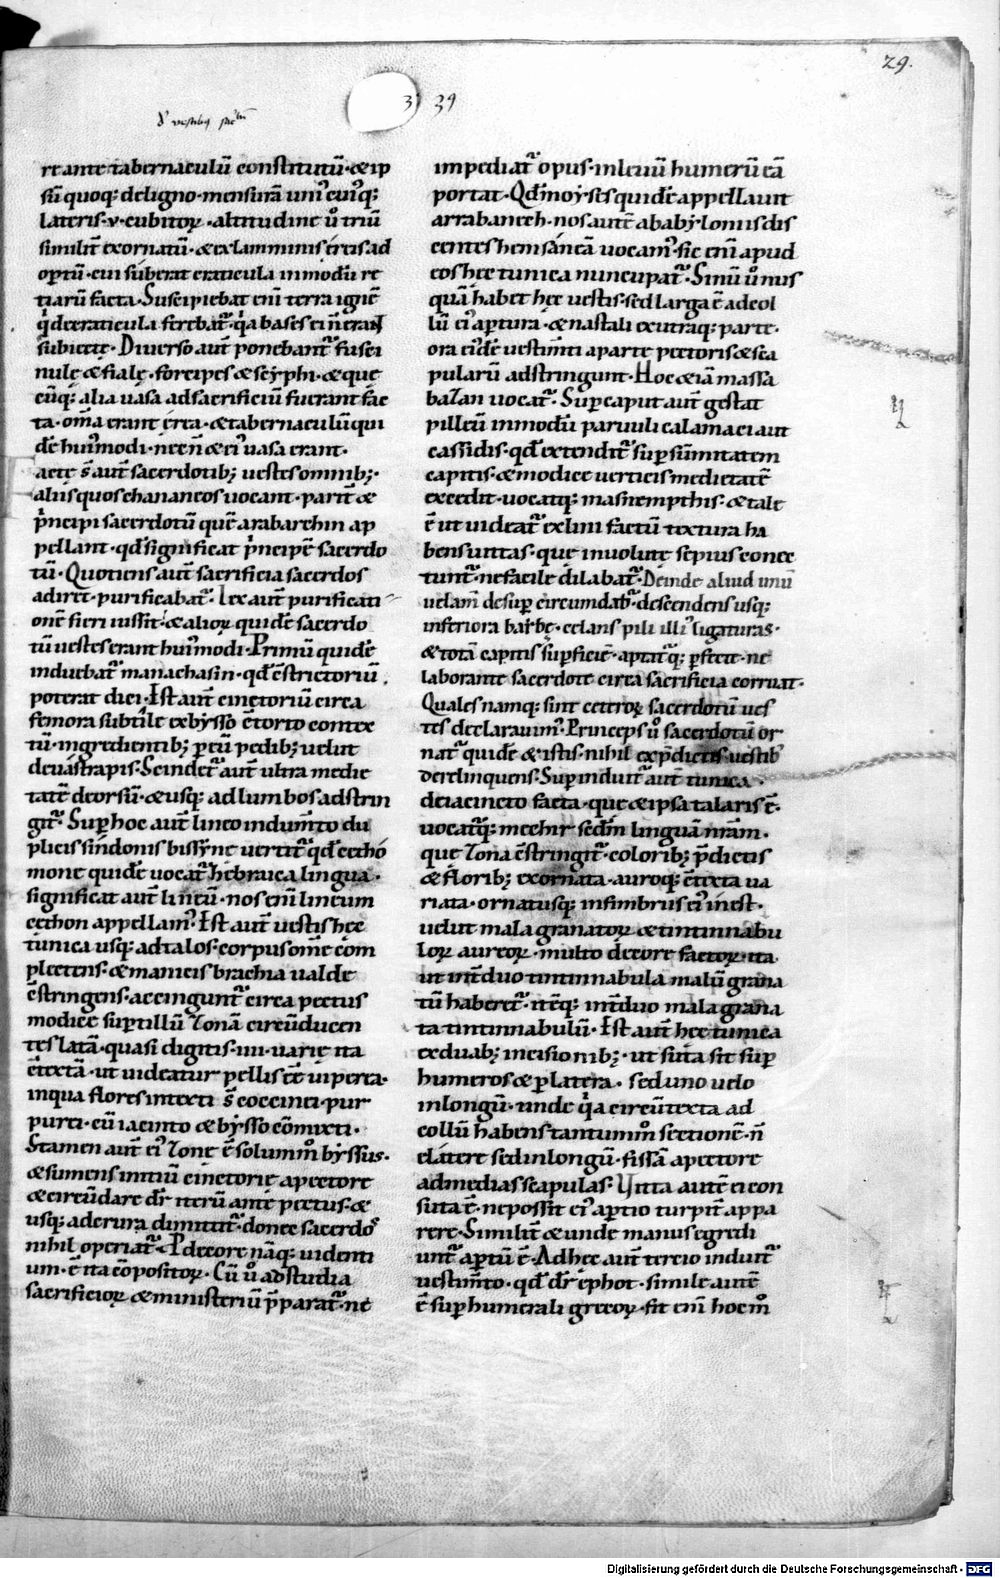 29.
39
re ante tabernaculū constitutū· & ip
sū quoq; de ligno· mensurā uniꝰ cuiꝰq;
lateris· v· cubitoꝝ· altitudine u͛o triū
similit͛ exornatū· & ex lamminis ęreis ad
op͛tū· cui suberat craticula in modū re
tiarū facta· Suscipiebat eni͛ terra ignē
q͛ de craticula ferebat͛· q͛a bases ei n̄ erant
subiecte· Diuerso aut͛ ponebant͛ fusci
nulę & fialę· forcipes & scyphi· & quę
cūq; alia uasa ad sacrificiū fuerant fac
ta· om̄a erant ęrea· & tabernaculū qui
dē hui͛modi· nec n̄ & ei͛ uasa erant·
acte s͛ aut͛ sacerdotib; uestes omnib;·
aliis quos chananeos uocant· parit͛ &
p͛ncipi sacerdotū quē arabarchin ap
pellant· qd͛ significat p͛ncipē sacerdo
tū· Quotiens aut͛ sacrificia sacerdos
adiret· purificabat͛· lex aut͛ purificati
onē fieri iussit· & alioꝝ quidē sacerdo
tū uestes erant hui͛modi· Primū quidē
induebat͛ manachasin· qd͛ c̄strictoriū
poterat dici· Est aut͛ cinctoriū circa
femora subtile ex bysso c̄torto contex
tū· ingredientib; p͛ eū pedib; uelut
deuastrapis· Scindet͛ aut͛ ultra medie
tatē deorsū· & usq; ad lumbos adstrin
git͛· Sup͛ hoc aut͛ lineo indum͛to du
plicis sindonis bissyne uertit͛ qd͛ etho
mone quidē uocat͛ hebraica lingua·
significat aut͛ lineū· nos eni͛ lineum
ecthon appellam͛· Est aut͛ uestis hęc
tunica usq; ad talos· corpus om͛e com
plectens· & manicis brachia ualde
c̄stringens· accingunt͛ circa pectus
modice sup͛ tillū zonā circūducen
tes latā· quasi digitis· iiii· uarie ita
c̄textā· ut uideatur pellis eē uiperea·
in qua flores intexti s͛ coccinei· pur
purei· cū iacinto & bysso cōmixti·
Stamen aut͛ ei͛ zone ē solummo͛ byssus·
& sumens initiū cinctorię a pectore
& circūdare dr͛ iterū ante pectus· &
usq; ad crura dimittit͛· donec sacerdos
nihil operiat͛· P decore nāq; uidenti
um· ē ita cōpositoꝝ· Cū u͛o ad studia
sacrificioꝝ & ministeriū p͛parat͛· ne
impediat͛ opus· in leuū humerū eā
portat· Qd͛ moyses quidē appellauit
arrabaneeh· nos autē a babylonis dis
centes hemsaneā uocam͛· sic eni͛ apud
eos hęc tunica nuncupat͛· Sinū u͛o nus
quā habet hęc uestis· sed larga ē adeol
lū ei͛ ap͛tura· & nastali ex utraq; parte·
ora ei͛dē uestim͛ti a parte pectoris & sca
pularū adstringunt· Hoc & iā massa
bazan uocat͛· Sup͛ caput aut͛ gestat
pilleū in modū paruuli calamaci aut
cassidis· qd͛ extendit͛ sup͛ sūmitatem
capitis· & modice uerticis medietatē
excedit· uocatq; masnempthis· & tale
ē ut uideat͛ ex lini factū textura ha
bens uittas· quę inuolutę sepius conec
tunt͛· ne facile dilabat͛· Deinde aliud unū
uelam̄ desup͛ circumdat͛· descendens usq;
inferiora barbę· celans pili illi͛ ligaturas·
& totā capitis sup͛ficiē· aptat͛ q; p͛fecte· ne
laborante sacerdote circa sacrificia corruat·
Quales namq; sint ceteroꝝ sacerdotū ues
tes declarauim͛· Princeps u͛o sacerdotū or
nat͛ quidē & istis· nihil ex p͛dictis uestib͛
derelinquens· Sup͛induit͛ aut͛ tunica·
de iacincto facta· que & ipsa talaris ē·
uocatq; mechir scdm͛ linguā nr͛am·
que zona c̄stringit͛· colorib; p͛dictis
& florib; exornata· auroq; c̄texta ua
riata· ornatusq; in fimbriis ei͛ inest·
uelut mala granatoꝝ & tintinnabu
loꝝ aureoꝝ· multo decore factoꝝ· ita
ut int͛ duo tintinnabula malū grana
tū haberet͛· itēq; int͛ duo mala grana
ta tintinnabulū· Est aut͛ hęc tunica
ex duab; incisionib;· ut suta sit sup͛
humeros & p͛ latera· sed uno uelo
in longū· unde q͛a circūtexta ad
collū habens tantummo͛ sectionē· n̄
e latere sed in longū· fissā a pectore
ad medias scapulas· Vitta autē ei con
suta ē· ne possit ei͛ ap͛tio turpit͛ appa
rere· Similit͛ & unde manus egredi
unt͛ ap͛tū ē· Ad hęc aut͛ tercio induit͛
uestim͛to· qd͛ dr͛ ephot· simile autē
ē sup͛ humerali grecoꝝ· fit eni͛ hoc m͛o
Digitalisierung gefördert durch die Deutsche Forschungsgemeinschaft - DFG